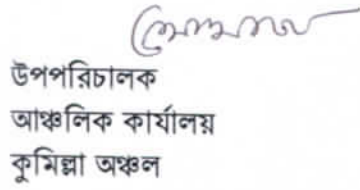 উপপরিচালক
আঞ্চলিক কার্যালয়
কুমিল্লা অঞ্চল